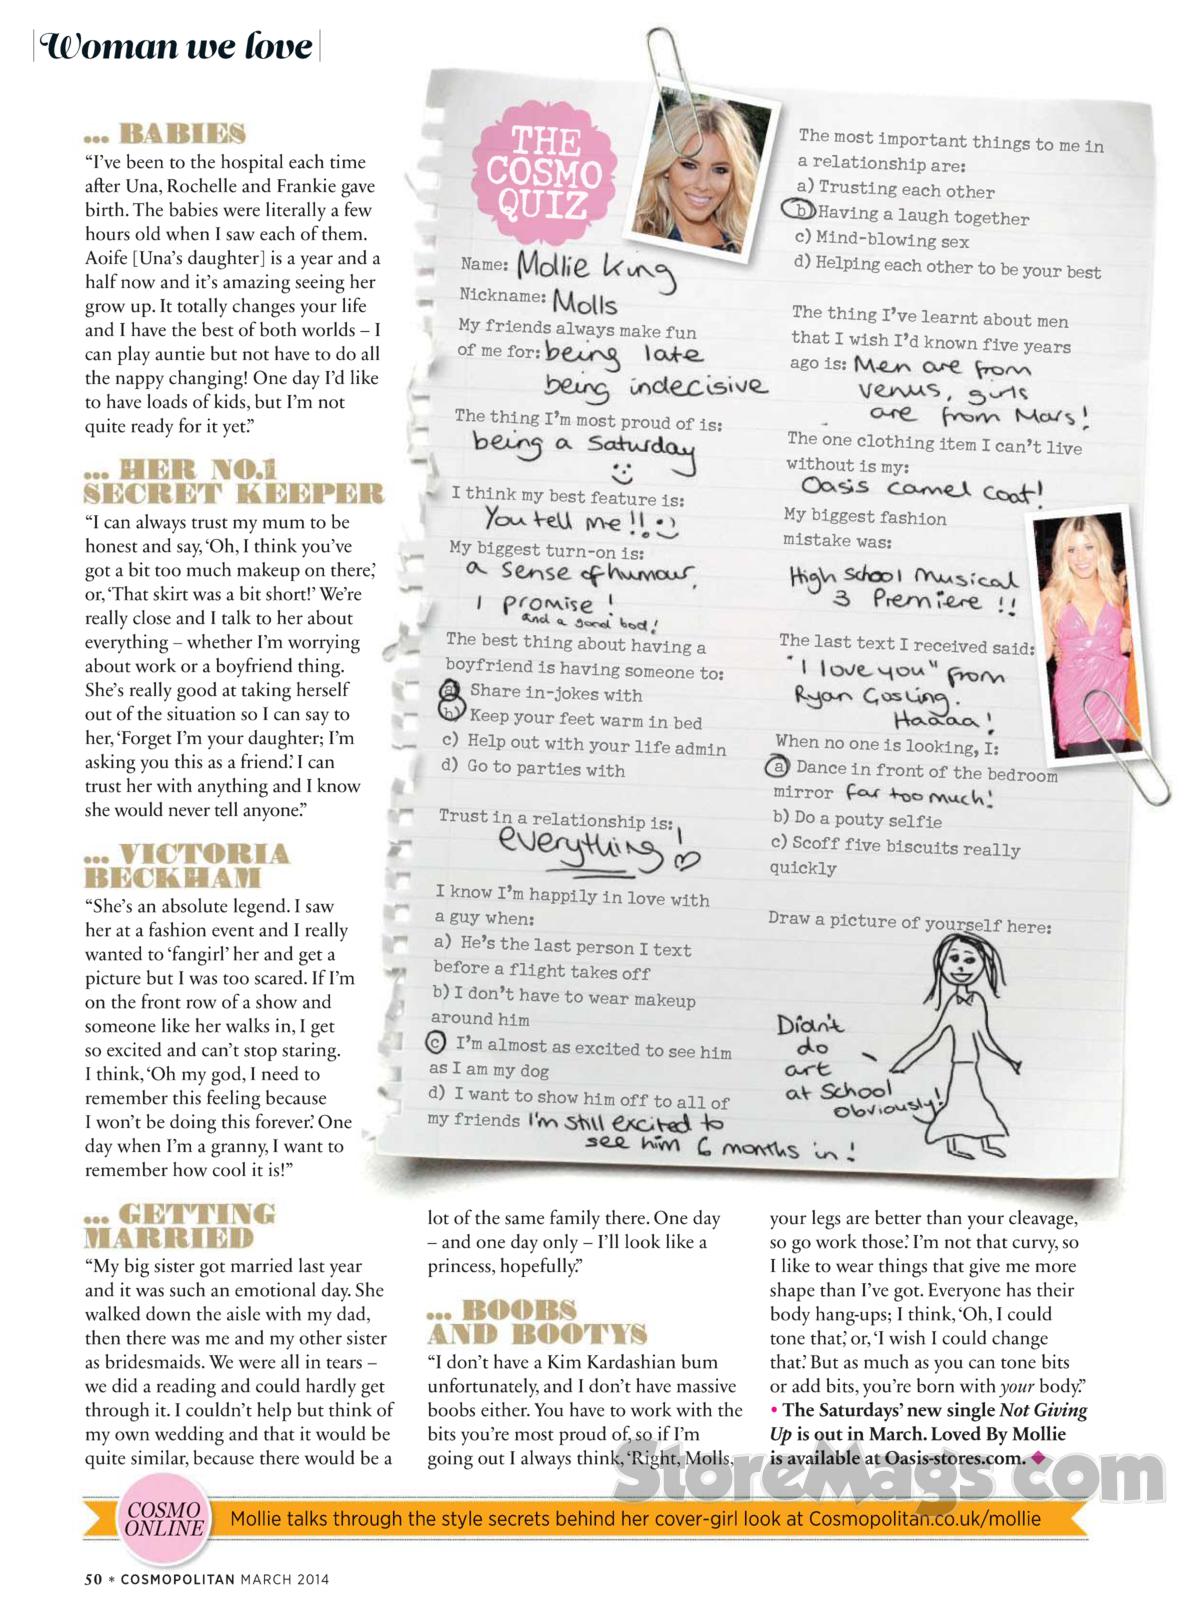 Woman we love
... BABIES
“I’ve been to the hospital each time
after Una, Rochelle and Frankie gave
birth. The babies were literally a few
hours old when I saw each of them.
Aoife [Una’s daughter] is a year and a
half now and it’s amazing seeing her
grow up. It totally changes your life
and I have the best of both worlds – I
can play auntie but not have to do all
the nappy changing! One day I’d like
to have loads of kids, but I’m not
quite ready for it yet.”
... HER NO.1
SECRET KEEPER
“I can always trust my mum to be
honest and say, ‘Oh, I think you’ve
got a bit too much makeup on there,’
or, ‘That skirt was a bit short!’ We’re
really close and I talk to her about
everything – whether I’m worrying
about work or a boyfriend thing.
She’s really good at taking herself
out of the situation so I can say to
her, ‘Forget I’m your daughter; I’m
asking you this as a friend.’ I can
trust her with anything and I know
she would never tell anyone.”
... VICTORIA
BECKHAM
“She’s an absolute legend. I saw
her at a fashion event and I really
wanted to ‘fangirl’ her and get a
picture but I was too scared. If I’m
on the front row of a show and
someone like her walks in, I get
so excited and can’t stop staring.
I think, ‘Oh my god, I need to
remember this feeling because
I won’t be doing this forever.’ One
day when I’m a granny, I want to
remember how cool it is!”
... GETTING
MARRIED
“My big sister got married last year
and it was such an emotional day. She
walked down the aisle with my dad,
then there was me and my other sister
as bridesmaids. We were all in tears –
we did a reading and could hardly get
through it. I couldn’t help but think of
my own wedding and that it would be
quite similar, because there would be a
lot of the same family there. One day
– and one day only – I’ll look like a
princess, hopefully.”
... BOOBS
AND BOOTYS
“I don’t have a Kim Kardashian bum
unfortunately, and I don’t have massive
boobs either. You have to work with the
bits you’re most proud of, so if I’m
going out I always think, ‘Right, Molls,
your legs are better than your cleavage,
so go work those.’ I’m not that curvy, so
I like to wear things that give me more
shape than I’ve got. Everyone has their
body hang-ups; I think, ‘Oh, I could
tone that,’ or, ‘I wish I could change
that.’ But as much as you can tone bits
or add bits, you’re born with your body.”
• The Saturdays’ new single Not Giving
Up is out in March. Loved By Mollie
is available at Oasis-stores.com. ◆
THE
COSMO
QUIZ
Name: Mollie King
Nickname: Molls
My friends always make fun
of me for: being late
being indecisive
The thing I’m most proud of is:
being a Saturday
I think my best feature is:
You tell me!! :)
My biggest turn-on is:
a sense of humour,
I promise!
and a good bod!
The best thing about having a
boyfriend is having someone to:
a) Share in-jokes with
b) Keep your feet warm in bed
c) Help out with your life admin
d) Go to parties with
Trust in a relationship is:
everything! ♡
I know I’m happily in love with
a guy when:
a) He’s the last person I text
before a flight takes off
b) I don’t have to wear makeup
around him
c I’m almost as excited to see him
as I am my dog
d) I want to show him off to all of
my friends I’m still excited to
see him 6 months in!
The most important things to me in
a relationship are:
a) Trusting each other
b) Having a laugh together
c) Mind-blowing sex
d) Helping each other to be your best
The thing I’ve learnt about men
that I wish I’d known five years
ago is: Men are from
venus, girls
are from Mars!
The one clothing item I can’t live
without is my:
Oasis camel coat!
My biggest fashion
mistake was:
High School Musical
3 Premiere!!
The last text I received said:
"I love you" from
Ryan Gosling.
Haaaa!
When no one is looking, I:
a) Dance in front of the bedroom
mirror far too much!
b) Do a pouty selfie
c) Scoff five biscuits really
quickly
Draw a picture of yourself here:
Didn't
do
art
at School
obviously!
StoreMags.com
COSMO
ONLINE
Mollie talks through the style secrets behind her cover-girl look at Cosmopolitan.co.uk/mollie
50 * COSMOPOLITAN MARCH 2014